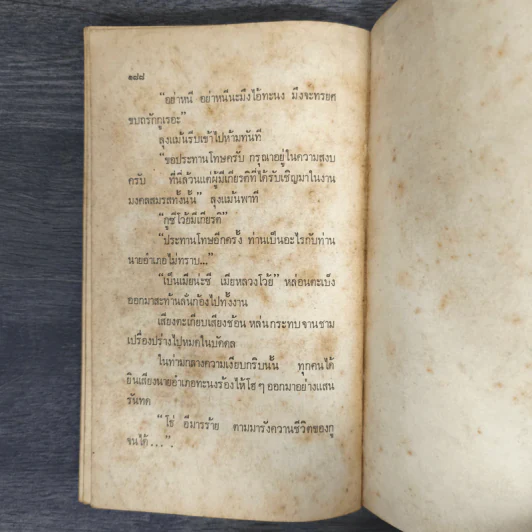 ๑๘๘
"อย่าหนี อย่าหนีนะมึงไอ้ทะนง มึงจะทรยศ
ขบถรักกูเรอะ"
ลุงแม้นรีบเข้าไปห้ามทันที
"ขอประทานโทษครับ กรุณาอยู่ในความสงบ
ครับ ที่นี่ล้วนแต่ผู้มีเกียรติที่ได้รับเชิญมาในงาน
มงคลสมรสทั้งนั้น" ลุงแม้นพาที
"กูซีโว้ยมีเกียรติ"
"ประทานโทษอีกครั้ง ท่านเป็นอะไรกับท่าน
นายอำเภอไม่ทราบ..."
"เป็นเมียน่ะซี เมียหลวงโว้ย" หล่อนตะเบ็ง
ออกมาสะท้านลั่นก้องไปทั้งงาน
เสียงตะเกียบเสียงช้อน หล่นกระทบจานชาม
เปรื่องปร่างไปหมดในบัดดล
ในท่ามกลางความเงียบกริบนั้น ทุกคนได้
ยินเสียงนายอำเภอทะนงร้องไห้โฮๆ ออกมาอย่างแสน
รันทด
"โธ่ อีมารร้าย ตามมารังควานชีวิตของกู
จนได้...".